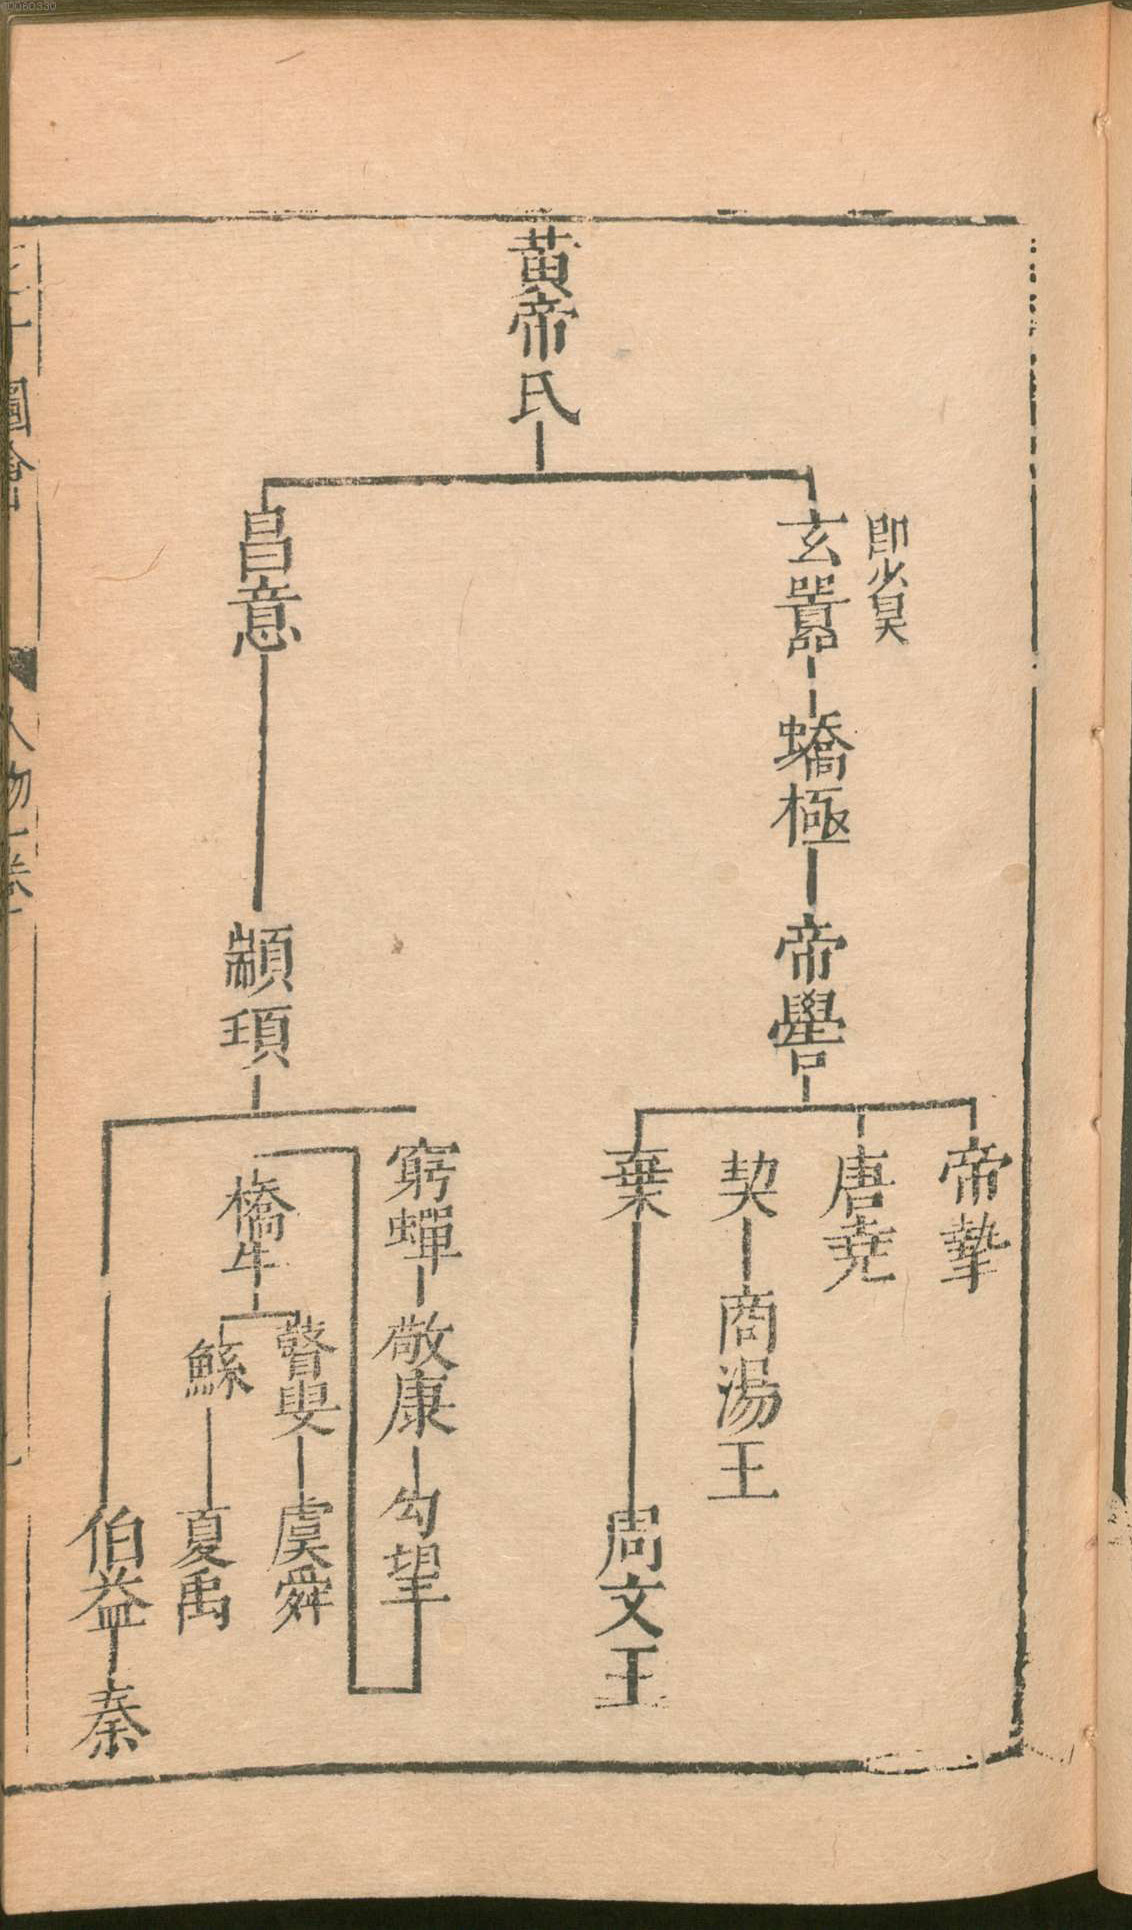 黃帝氏
即少昊
玄囂
蟜極
帝嚳
帝摯
唐堯
契
商湯王
棄
周文王
昌意
顓頊
窮蟬
敬康
勾望
橋牛
瞽叟
虞舜
鯀
夏禹
伯益
秦
圖會
人物一卷